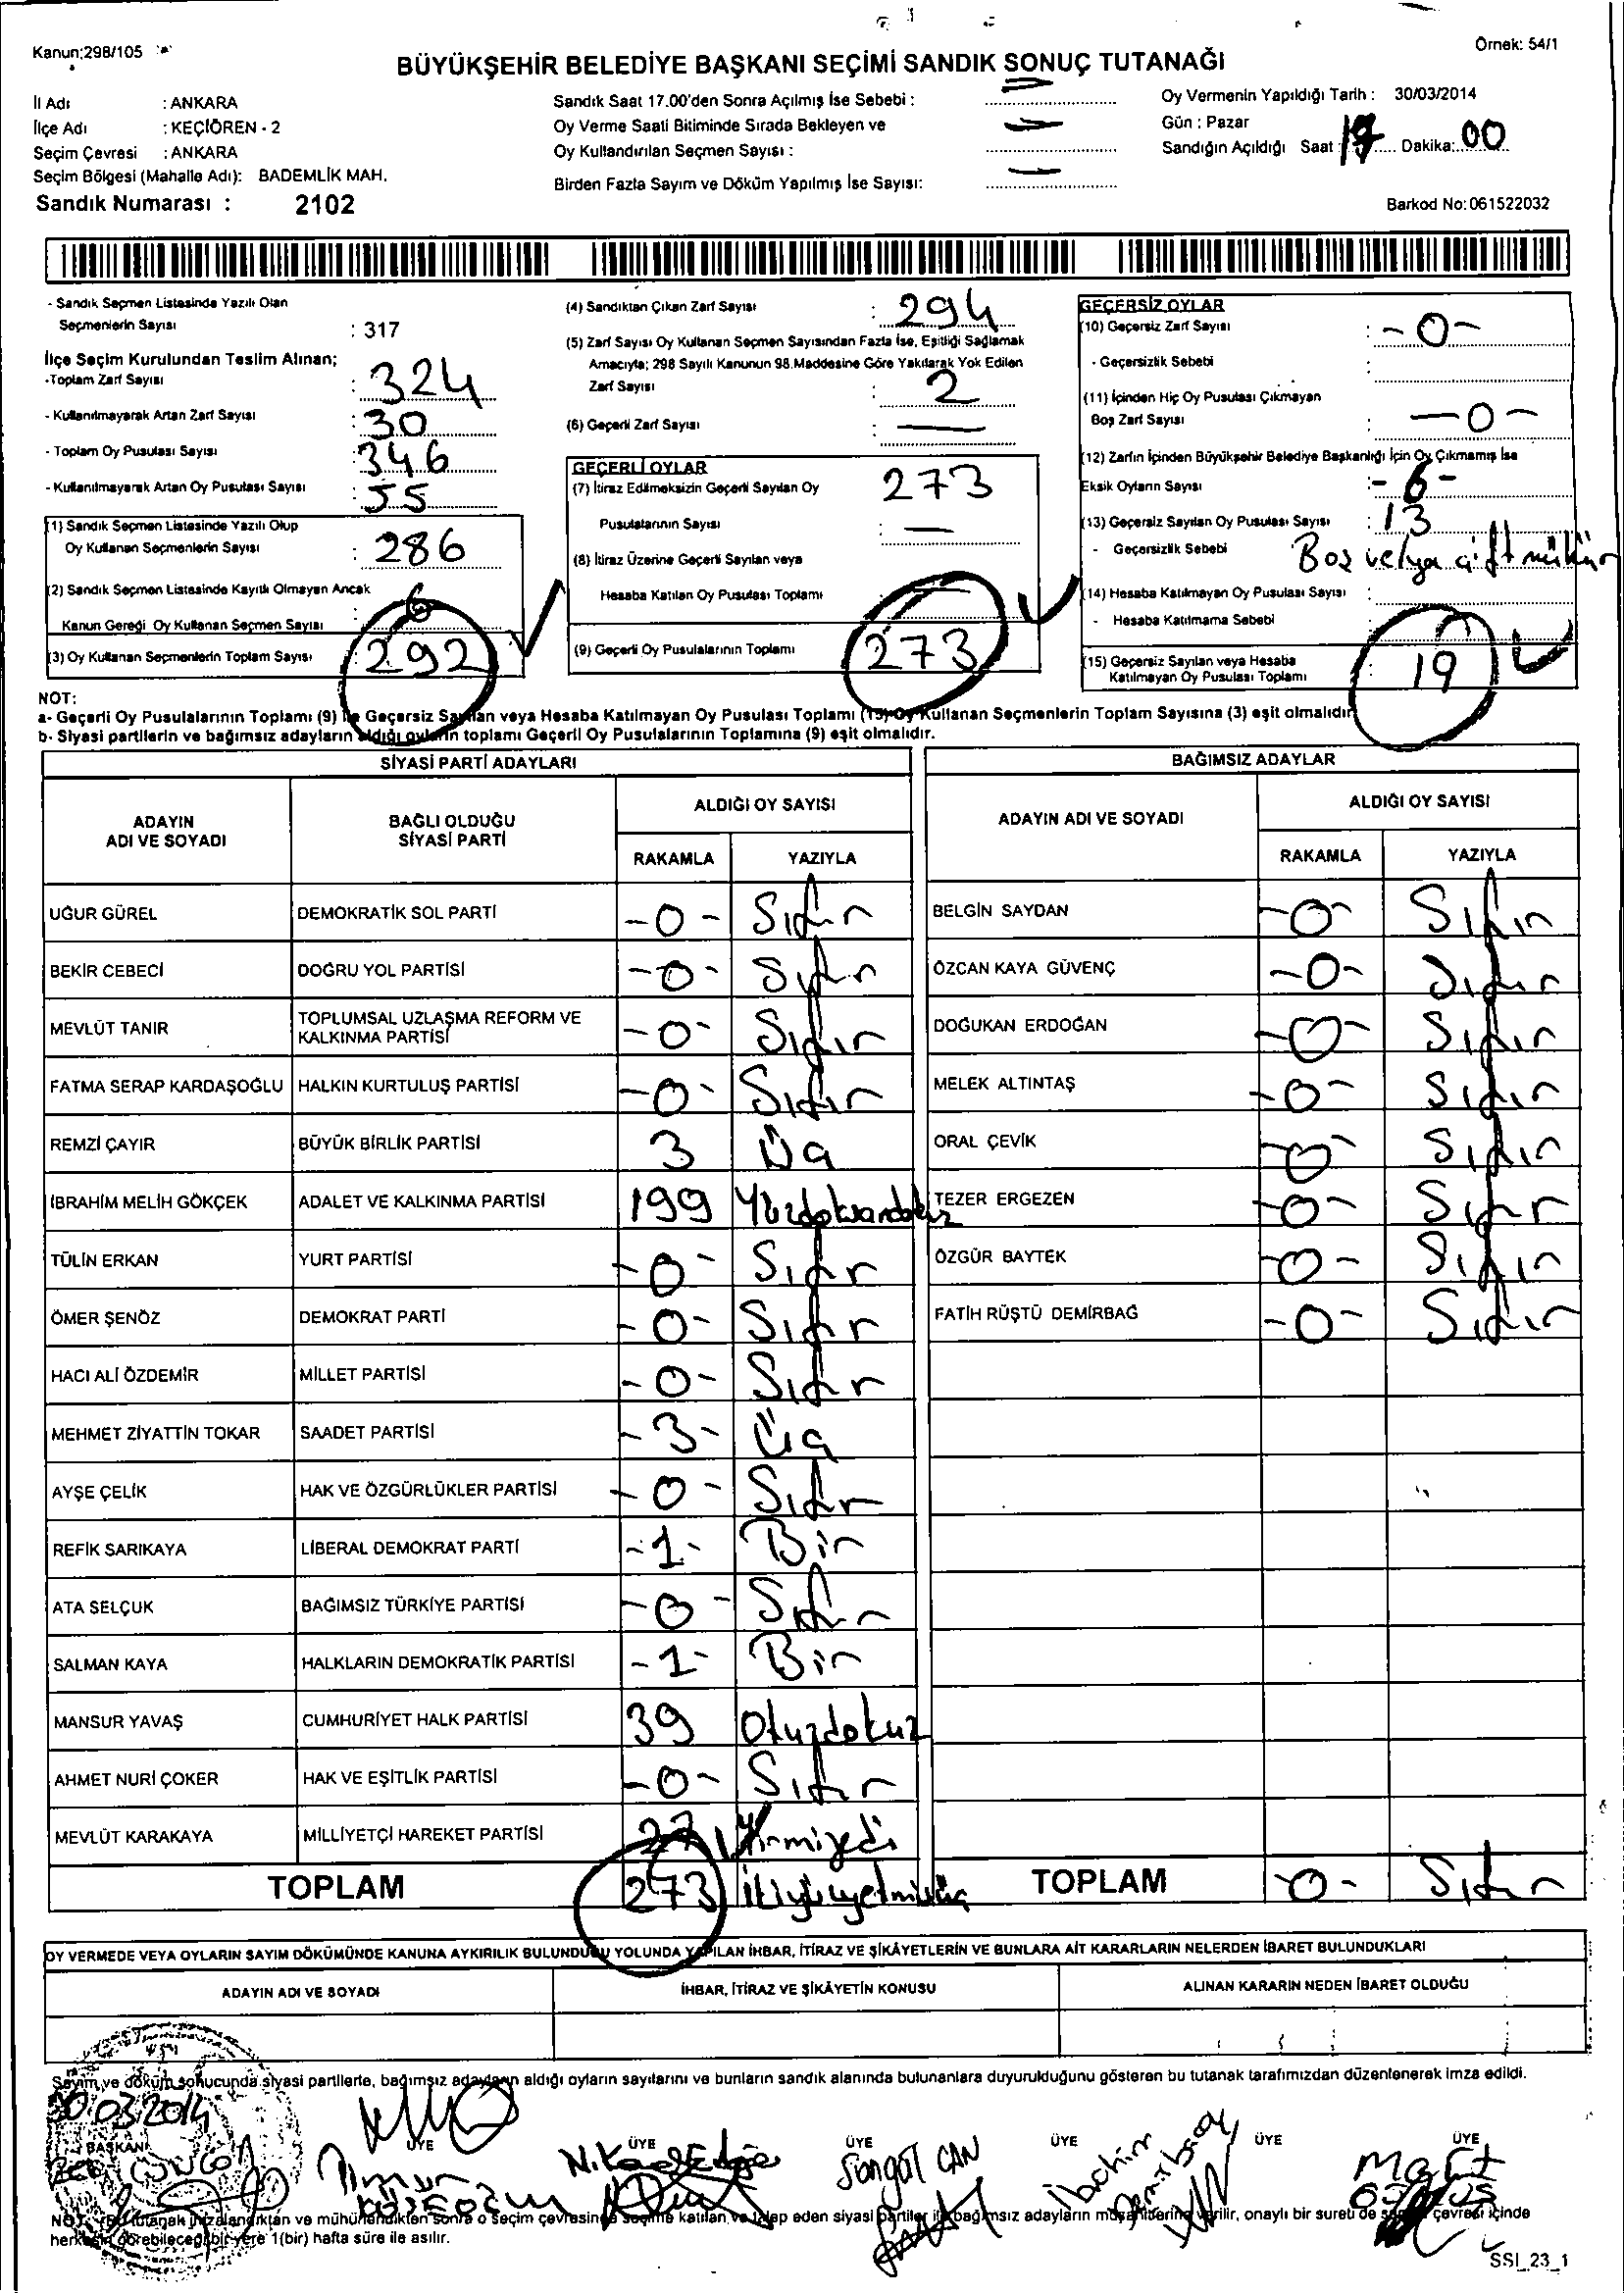 Kanun;298/105
Örnek: 54/1
BÜYÜKŞEHİR BELEDİYE BAŞKANI SEÇİMİ SANDIK SONUÇ TUTANAĞI
İl Adı : ANKARA
İlçe Adı : KEÇİÖREN - 2
Seçim Çevresi : ANKARA
Seçim Bölgesi (Mahalle Adı): BADEMLİK MAH.
Sandık Numarası : 2102
Sandık Saat 17.00'den Sonra Açılmış İse Sebebi :
Oy Verme Saati Bitiminde Sırada Bekleyen ve
Oy Kullandırılan Seçmen Sayısı :
Birden Fazla Sayım ve Döküm Yapılmış İse Sayısı:
Oy Vermenin Yapıldığı Tarih : 30/03/2014
Gün : Pazar
Sandığın Açıldığı Saat : 17 Dakika: 00
Barkod No:061522032
- Sandık Seçmen Listesinde Yazılı Olan
Seçmenlerin Sayısı : 317
İlçe Seçim Kurulundan Teslim Alınan;
-Toplam Zarf Sayısı : 324
- Kullanılmayarak Artan Zarf Sayısı : 30
- Toplam Oy Pusulası Sayısı : 346
- Kullanılmayarak Artan Oy Pusulası Sayısı : 55
(1) Sandık Seçmen Listesinde Yazılı Olup
Oy Kullanan Seçmenlerin Sayısı : 286
(2) Sandık Seçmen Listesinde Kayıtlı Olmayan Ancak
Kanun Gereği Oy Kullanan Seçmen Sayısı 6
(3) Oy Kullanan Seçmenlerin Toplam Sayısı 292
(4) Sandıktan Çıkan Zarf Sayısı : 294
(5) Zarf Sayısı Oy Kullanan Seçmen Sayısından Fazla İse, Eşitliği Sağlamak
Amacıyla; 298 Sayılı Kanunun 98.Maddesine Göre Yakılarak Yok Edilen
Zarf Sayısı : 2
(6) Geçerli Zarf Sayısı : —
GEÇERLİ OYLAR
(7) İtiraz Edilmeksizin Geçerli Sayılan Oy 273
Pusulalarının Sayısı : —
(8) İtiraz Üzerine Geçerli Sayılan veya
Hesaba Katılan Oy Pusulası Toplamı :
(9) Geçerli Oy Pusulalarının Toplamı 273
GEÇERSİZ OYLAR
(10) Geçersiz Zarf Sayısı : -0-
- Geçersizlik Sebebi :
(11) İçinden Hiç Oy Pusulası Çıkmayan
Boş Zarf Sayısı : -0-
(12) Zarfın İçinden Büyükşehir Belediye Başkanlığı İçin Oy Çıkmamış İse
Eksik Oyların Sayısı : -6-
(13) Geçersiz Sayılan Oy Pusulası Sayısı : 13
- Geçersizlik Sebebi Boş veya çift mühür
(14) Hesaba Katılmayan Oy Pusulası Sayısı :
- Hesaba Katılmama Sebebi
(15) Geçersiz Sayılan veya Hesaba
Katılmayan Oy Pusulası Toplamı : 19
NOT:
a- Geçerli Oy Pusulalarının Toplamı (9) ile Geçersiz Sayılan veya Hesaba Katılmayan Oy Pusulası Toplamı (15) Oy Kullanan Seçmenlerin Toplam Sayısına (3) eşit olmalıdır
b- Siyasi partilerin ve bağımsız adayların aldığı oyların toplamı Geçerli Oy Pusulalarının Toplamına (9) eşit olmalıdır.
SİYASİ PARTİ ADAYLARI
ADAYIN ADI VE SOYADI
BAĞLI OLDUĞU SİYASİ PARTİ
ALDIĞI OY SAYISI
RAKAMLA YAZIYLA
UĞUR GÜREL DEMOKRATİK SOL PARTİ -0- Sıfır
BEKİR CEBECİ DOĞRU YOL PARTİSİ -0- Sıfır
MEVLÜT TANIR TOPLUMSAL UZLAŞMA REFORM VE KALKINMA PARTİSİ -0- Sıfır
FATMA SERAP KARDAŞOĞLU HALKIN KURTULUŞ PARTİSİ -0- Sıfır
REMZİ ÇAYIR BÜYÜK BİRLİK PARTİSİ 3 Üç
İBRAHİM MELİH GÖKÇEK ADALET VE KALKINMA PARTİSİ 199 Yüzdoksandokuz
TÜLİN ERKAN YURT PARTİSİ -0- Sıfır
ÖMER ŞENÖZ DEMOKRAT PARTİ -0- Sıfır
HACI ALİ ÖZDEMİR MİLLET PARTİSİ -0- Sıfır
MEHMET ZİYATTİN TOKAR SAADET PARTİSİ -3- Üç
AYŞE ÇELİK HAK VE ÖZGÜRLÜKLER PARTİSİ -0- Sıfır
REFİK SARIKAYA LİBERAL DEMOKRAT PARTİ -1- Bir
ATA SELÇUK BAĞIMSIZ TÜRKİYE PARTİSİ -0- Sıfır
SALMAN KAYA HALKLARIN DEMOKRATİK PARTİSİ -1- Bir
MANSUR YAVAŞ CUMHURİYET HALK PARTİSİ 39 Otuzdokuz
AHMET NURİ ÇOKER HAK VE EŞİTLİK PARTİSİ -0- Sıfır
MEVLÜT KARAKAYA MİLLİYETÇİ HAREKET PARTİSİ 27 Yirmiyedi
TOPLAM 273 ikiyüzyetmişüç
BAĞIMSIZ ADAYLAR
ADAYIN ADI VE SOYADI
ALDIĞI OY SAYISI
RAKAMLA YAZIYLA
BELGİN SAYDAN -0- Sıfır
ÖZCAN KAYA GÜVENÇ -0- Sıfır
DOĞUKAN ERDOĞAN -0- Sıfır
MELEK ALTINTAŞ -0- Sıfır
ORAL ÇEVİK -0- Sıfır
TEZER ERGEZEN -0- Sıfır
ÖZGÜR BAYTEK -0- Sıfır
FATİH RÜŞTÜ DEMİRBAĞ -0- Sıfır
TOPLAM -0- Sıfır
OY VERMEDE VEYA OYLARIN SAYIM DÖKÜMÜNDE KANUNA AYKIRILIK BULUNDUĞU YOLUNDA YAPILAN İHBAR, İTİRAZ VE ŞİKÂYETLERİN VE BUNLARA AİT KARARLARIN NELERDEN İBARET BULUNDUKLARI
ADAYIN ADI VE SOYADI İHBAR, İTİRAZ VE ŞİKÂYETİN KONUSU ALINAN KARARIN NEDEN İBARET OLDUĞU
Sayım ve döküm sonucunda siyasi partilerle, bağımsız adayların aldığı oyların sayılarını ve bunların sandık alanında bulunanlara duyurulduğunu gösteren bu tutanak tarafımızdan düzenlenerek imza edildi.
30.03.2014
BAŞKAN ÜYE ÜYE ÜYE ÜYE ÜYE ÜYE
Songül CAN
İbrahim Demirbaş
NOT: (Bu tutanak imzalandıktan ve mühürlendikten sonra o seçim çevresinde seçime katılan ve talep eden siyasi partiler ile bağımsız adayların müşahitlerine verilir, onaylı bir sureti de seçim çevresi içinde
herkesin görebileceği bir yere 1(bir) hafta süre ile asılır.
SSI_23_1